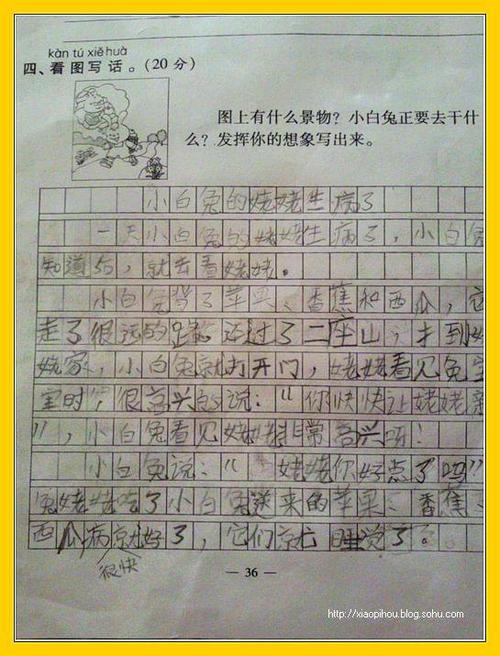 kàn tú xiě huà
四、看图写话。(20分)
图上有什么景物?小白兔正要去干什
么?发挥你的想象写出来。
小白兔的姥姥生病了
一天小白兔的姥姥生病了,小白兔
知道后,就去看姥姥。
小白兔背了苹果、香蕉和西瓜,它
走了很远的路还过了二座山,才到姥
姥家,小白兔就打开门,姥姥看见兔宝
宝时,很高兴的说:“你快快让姥姥亲
”,小白兔看见姥姥非常高兴呀!
小白兔说:“姥姥你好点了吗”
兔姥姥吃了小白兔送来的苹果、香蕉、
西瓜病就好了,它们就睡觉了。
很快
— 36 —
http://xiaopihou.blog.sohu.com